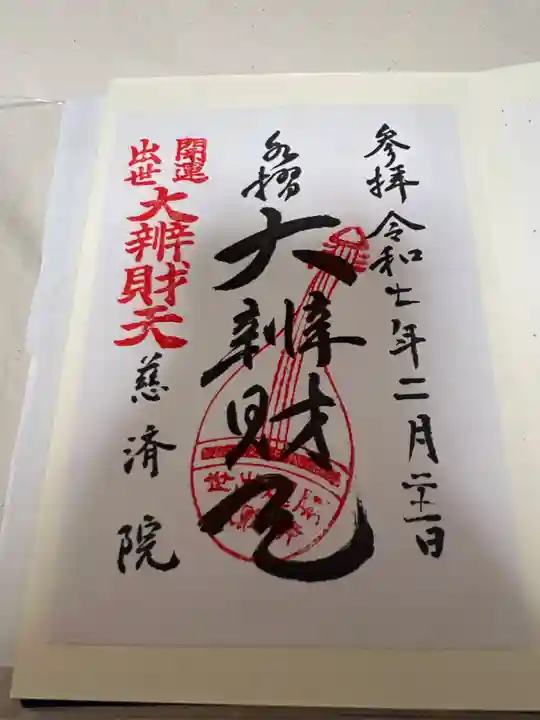 参拝 令和七年二月二十一日
水摺
大辨財天
開運
出世
大辨財天
慈済院